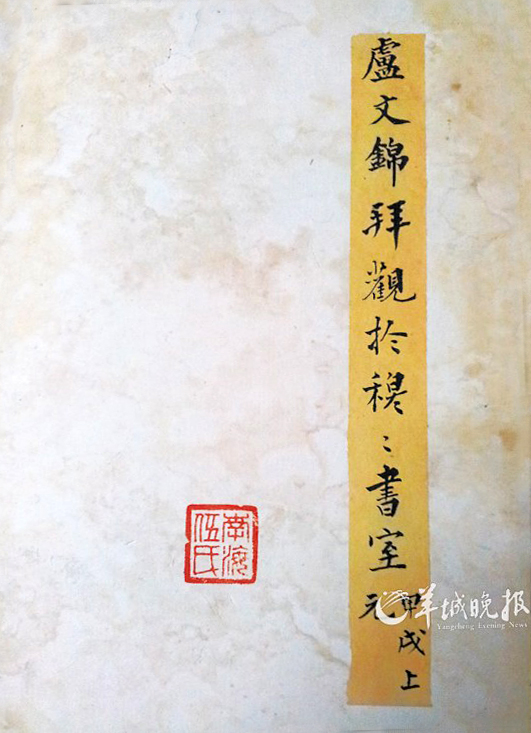 盧文錦拜觀於穆〻書室
甲戌上
元
南海
伍氏
羊城晚报
Yangcheng Evening News